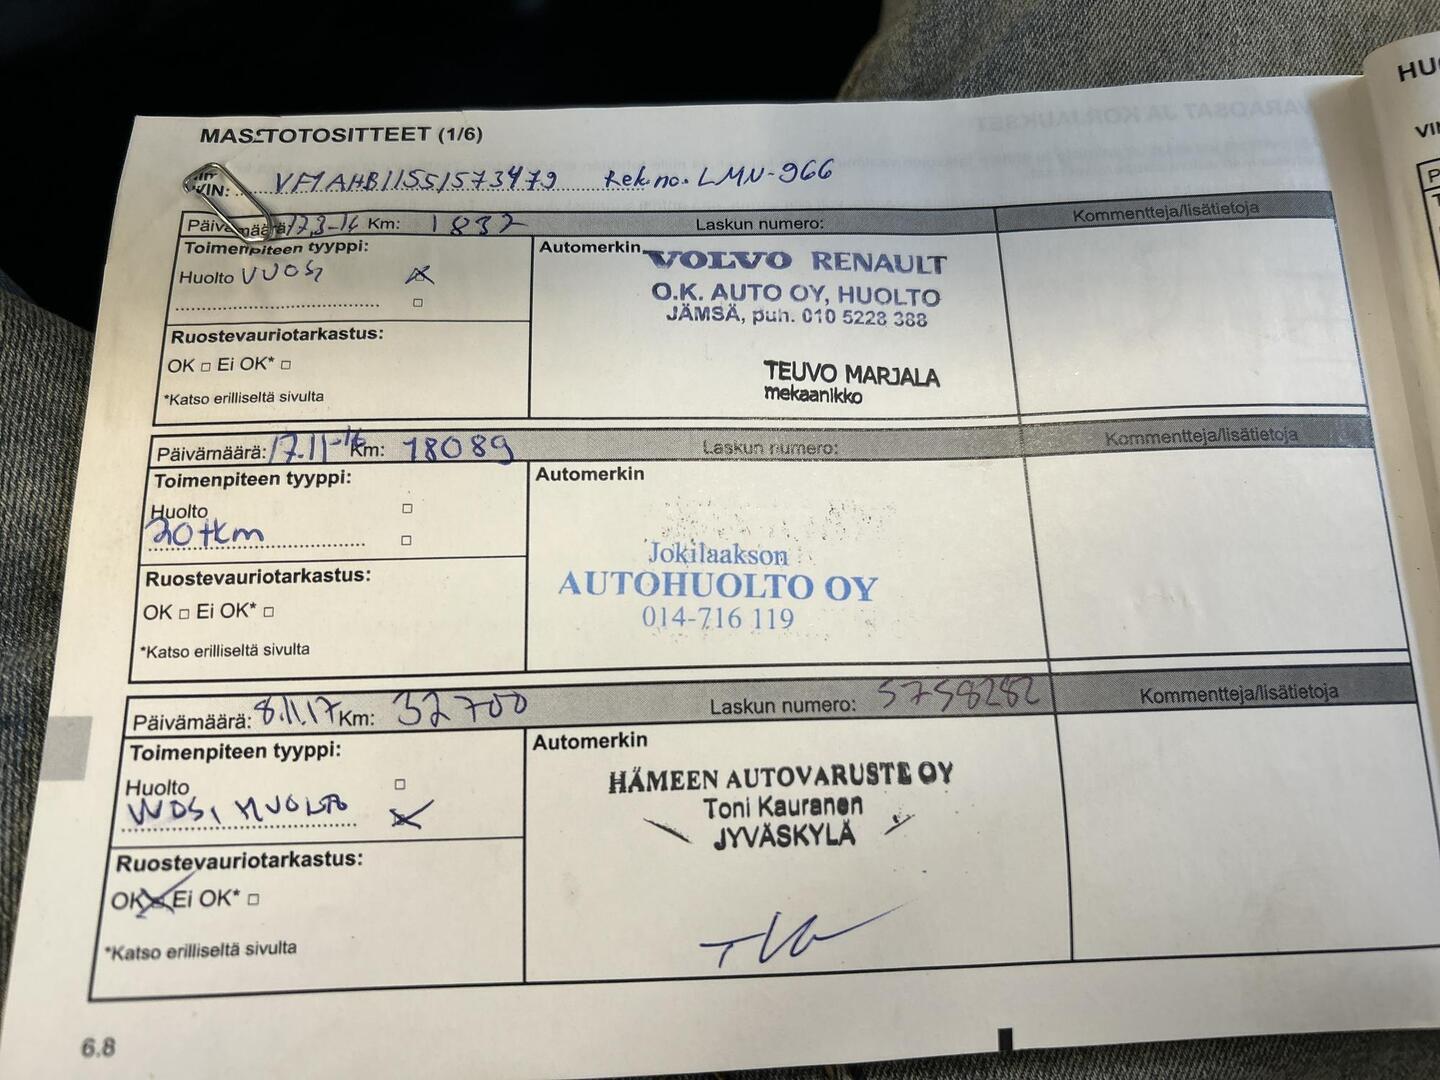 MASTOTOSITTEET (1/6)
VIN: VF1AHB11551573479 Rek.no. LMU-966
Päivämäärä: 17.3-16 Km: 1832 Laskun numero: Kommentteja/lisätietoja
Toimenpiteen tyyppi: Automerkin
Huolto VUOSI
VOLVO RENAULT
O.K. AUTO OY, HUOLTO
JÄMSÄ, puh. 010 5228 388
Ruostevauriotarkastus:
OK □ Ei OK* □
TEUVO MARJALA
mekaanikko
*Katso erilliseltä sivulta
Päivämäärä: 17.11-16 Km: 18089 Laskun numero: Kommentteja/lisätietoja
Toimenpiteen tyyppi: Automerkin
Huolto
20tkm
Jokilaakson
AUTOHUOLTO OY
014-716 119
Ruostevauriotarkastus:
OK □ Ei OK* □
*Katso erilliseltä sivulta
Päivämäärä: 8.11.17 Km: 32700 Laskun numero: 5758282 Kommentteja/lisätietoja
Toimenpiteen tyyppi: Automerkin
Huolto
VUOSI HUOLTO
HÄMEEN AUTOVARUSTE OY
Toni Kauranen
JYVÄSKYLÄ
Ruostevauriotarkastus:
OK Ei OK* □
*Katso erilliseltä sivulta
6.8